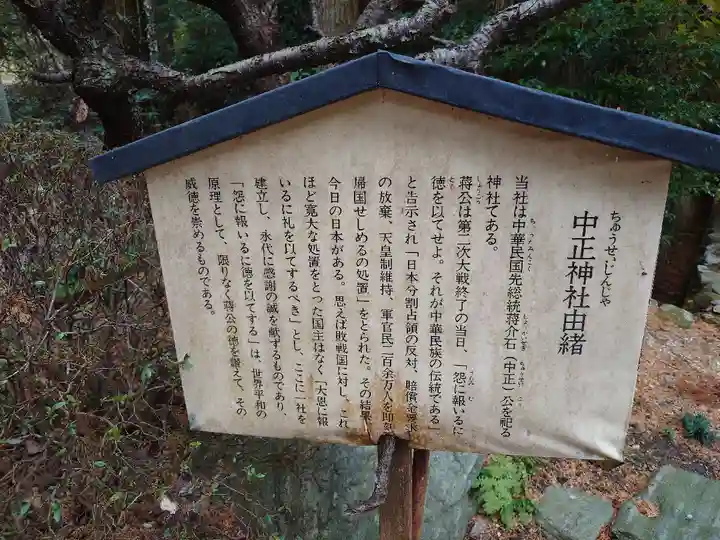 ちゅうせいじんじゃ
中正神社由緒
当社は中華民国先総統蒋介石(中正)公を祀る
神社である。
蒋公は第二次大戦終了の当日、「怨に報いるに
徳を以てせよ。それが中華民族の伝統である」
と告示され「日本分割占領の反対、賠償金要求
の放棄、天皇制維持、軍官民二百余万人を即刻
帰国せしめるの処置」をとられた。その結果
今日の日本がある。思えば敗戦国に対し、これ
ほど寛大な処置をとった国主はなく「大恩に報
いるに礼を以てするべき」とし、ここに一社を
建立し、永代に感謝の誠を献ずるものであり、
「怨に報いるに徳を以てする」は、世界平和の
原理として、限りなく蒋公の徳を讃えて、その
威徳を崇めるものである。